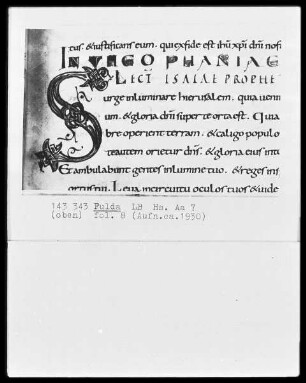 tus. & iustificans eum. qui ex fide est ihu xpi dni nos
IN THEOPHANIAE
LECT ISAIAE PROPHE
Surge inluminare hierusalem. quia ven
um. & gloria dni super te orta est. Quia
bre operient terram. & caligo populo
te autem orietur dns. & gloria eius inti
Et ambulabunt gentes in lumine tuo. & reges in s
ortus tui. Leva in circuitu oculos tuos & vide
143 343 Fulda LB Hs. Aa 7
(oben) fol. 8 (Aufn.ca.1930)